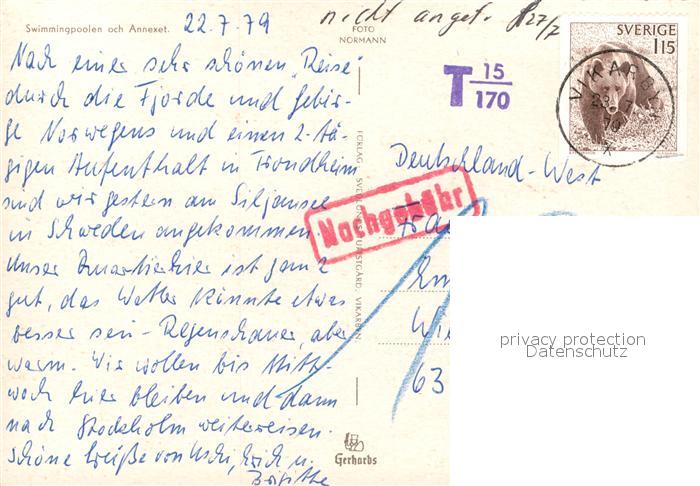 Swimmingpoolen och Annexet.
22.7.79
nicht anget. 27/7
FOTO
NORMANN
SVERIGE
115
VIKARBYN
T 15/170
Nach einer sehr schönen „Reise“
durch die Fjorde und Gebir-
ge Norwegens und einen 2-tä-
gigen Aufenthalt in Trondheim
sind wir gestern am Siljansee
in Schweden angekommen.
Unser Quartier hier ist ganz
gut, das Wetter könnte etwas
besser sein - Regenschauer, aber
warm. Wir wollen bis Mitt-
woch hier bleiben und dann
nach Stockholm weiterreisen.
Schöne Grüße von Uschi, Erich u.
Brigitte
FÖRLAG: VIKARBYN
Deutschland-West
Nachgebühr
63
privacy protection
Datenschutz
Gerhards